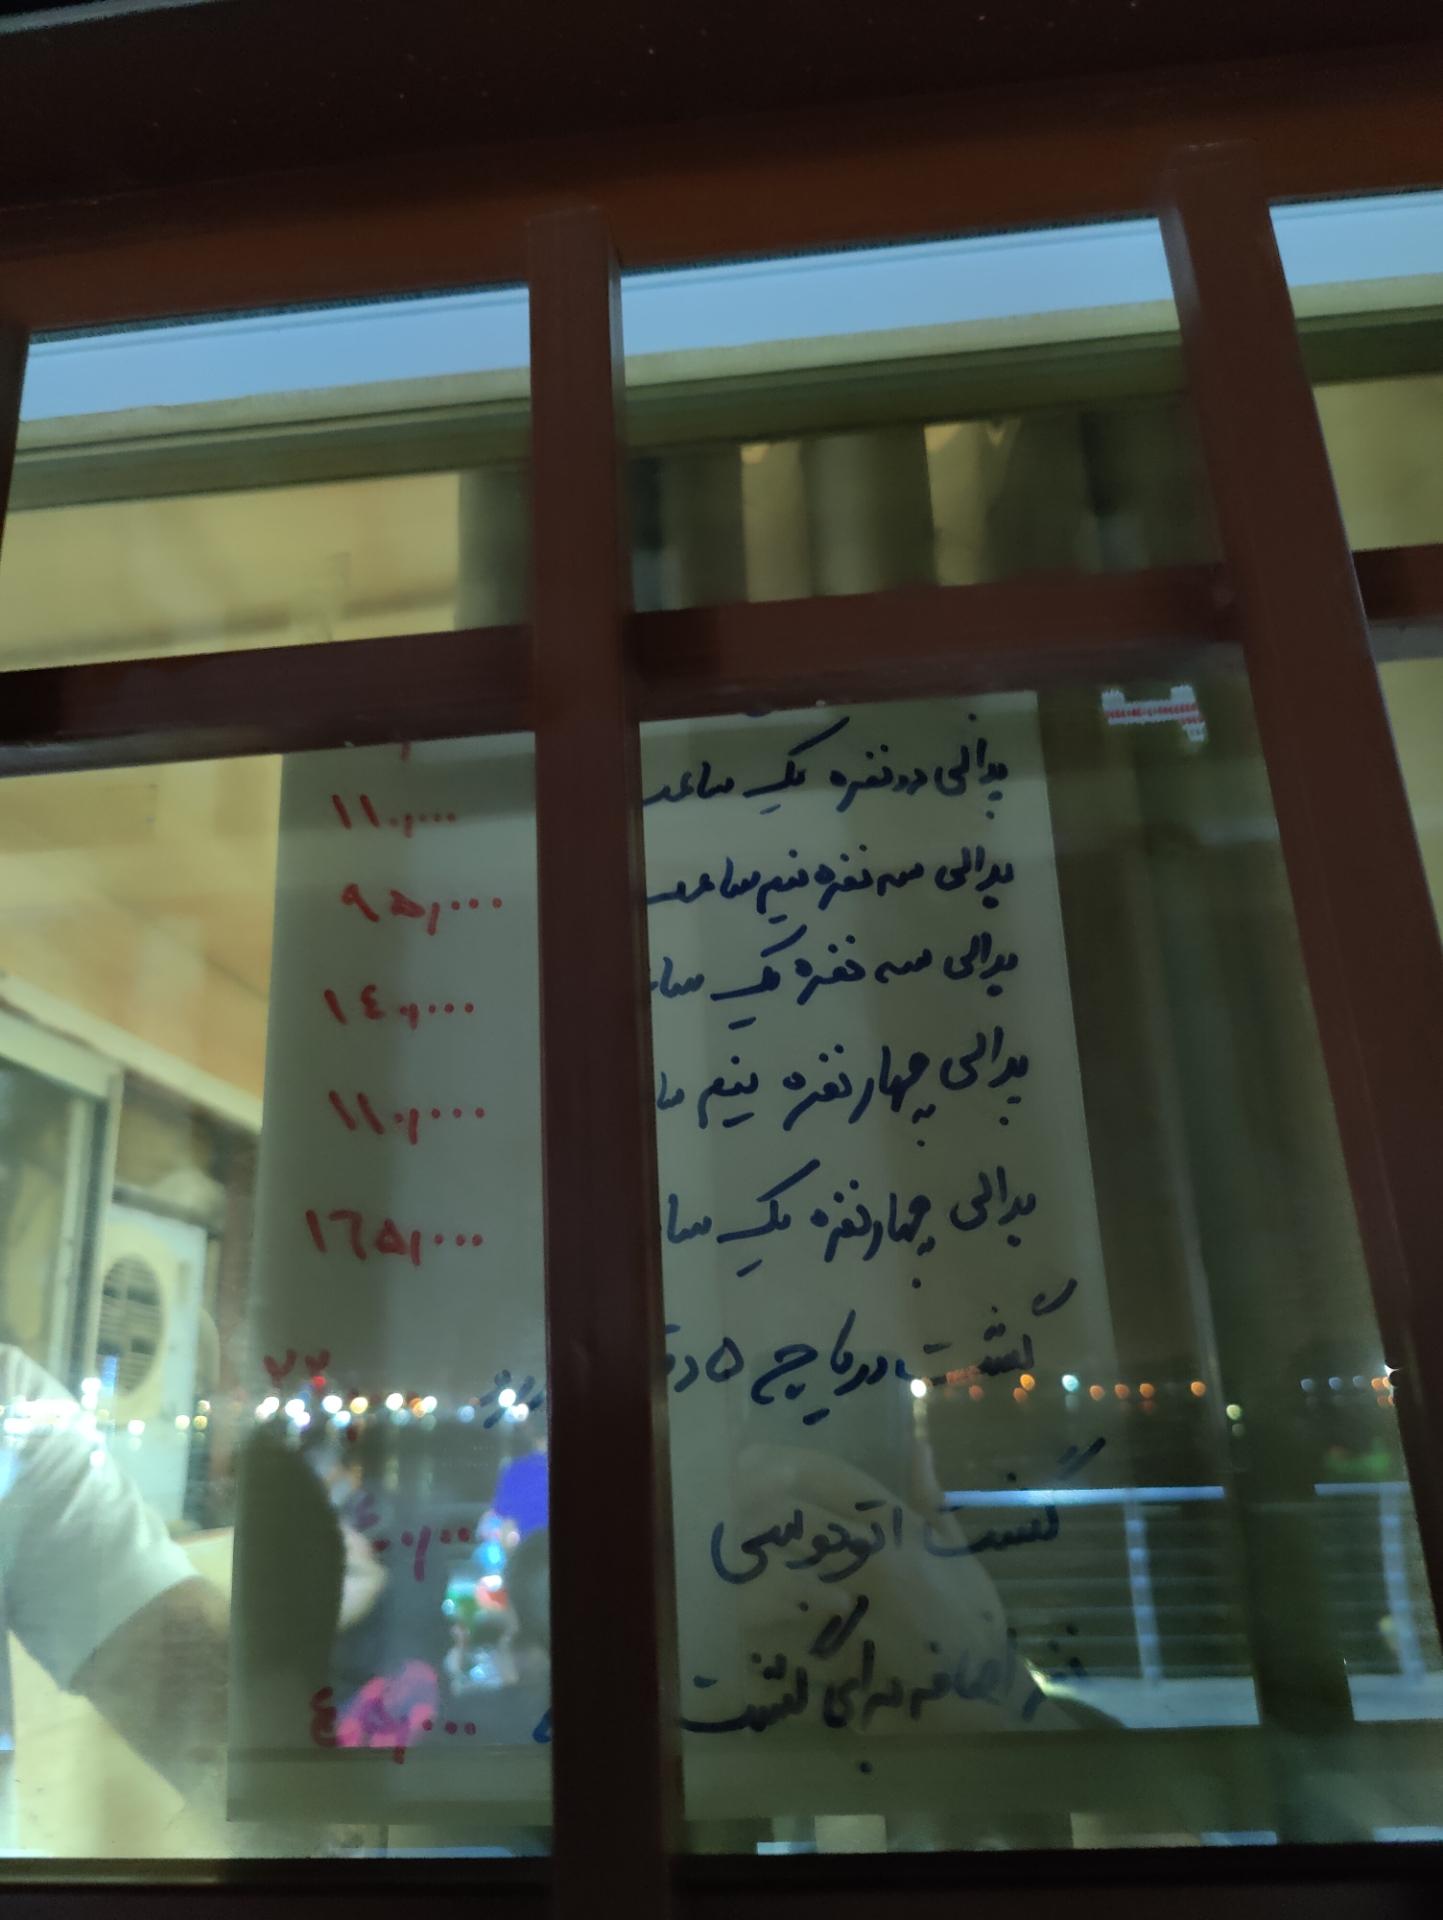 پدالی دو نفره یک ساعت ۱۱۰,۰۰۰
پدالی سه نفره نیم ساعت ۹۵,۰۰۰
پدالی سه نفره یک سا ۱٤۰,۰۰۰
پدالی چهار نفره نیم سا ۱۱۰,۰۰۰
پدالی چهار نفره یک سا ۱٦۵,۰۰۰
گشت دریاچه ۵ دق
گشت اتوبوسی ٤۰,۰۰۰
نفر اضافه برای گشت ٤۵,۰۰۰